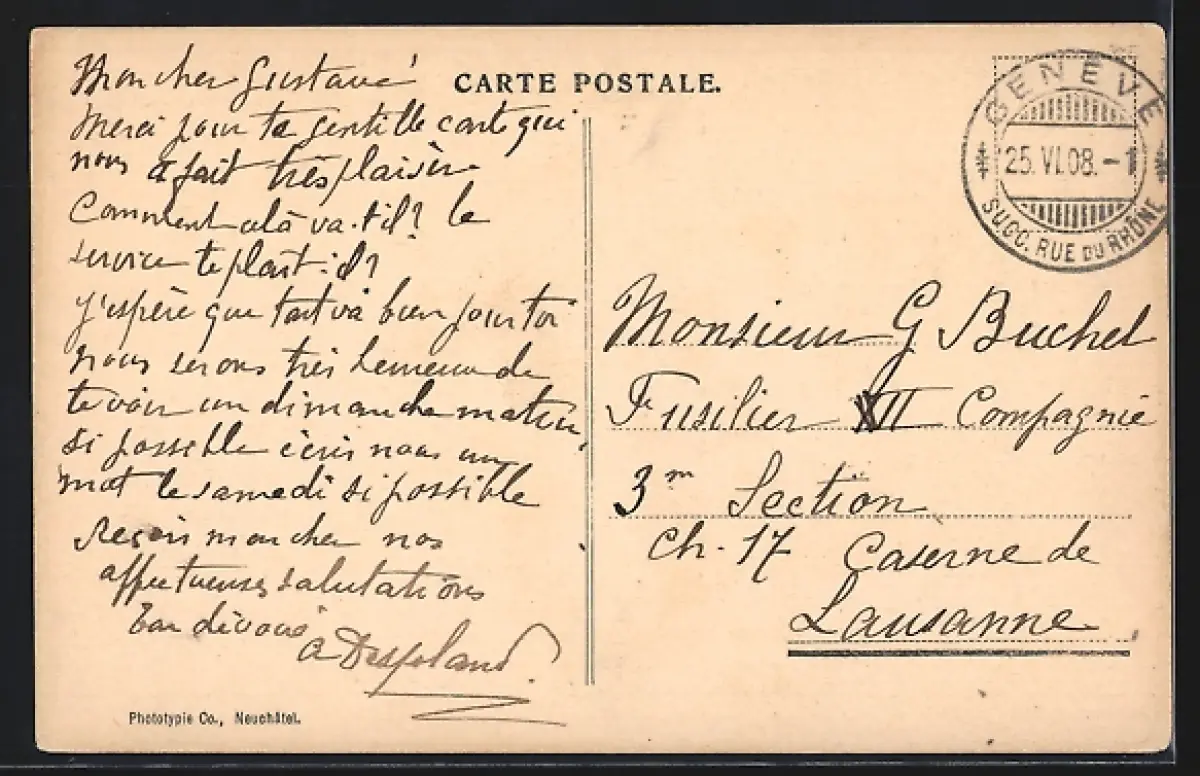 CARTE POSTALE.
Mon cher Gustave
Merci pour ta gentille carte qui
nous a fait très plaisir
Comment celà va-t-il? le
service te plait-il?
J'espère que tout va bien pour toi
nous serons très heureux de
te voir un dimanche matin,
si possible écris nous un
mot le samedi si possible
Reçois mon cher nos
affectueuses salutations
Ton dévoué
A Desponland
Phototypie Co., Neuchâtel.
GENÈVE
25. VI. 08. - 1
SUCC. RUE DU RHÔNE
Monsieur G Buchel
Fusilier II Compagnie
3m Section
Ch. 17 Caserne de
Lausanne